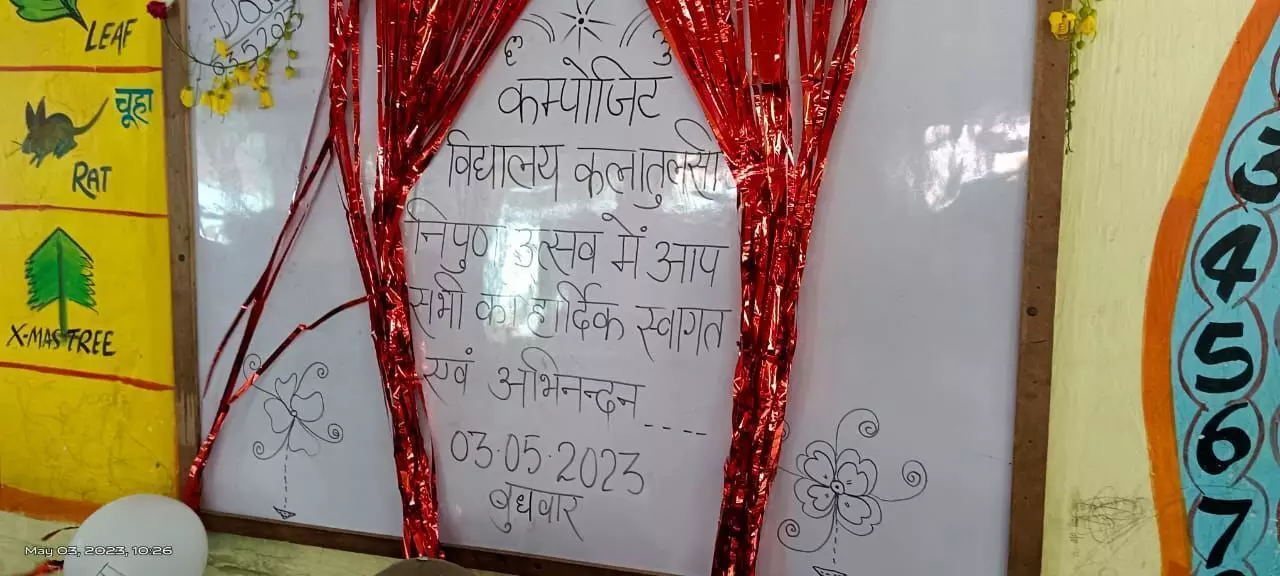 LEAF
चूहा
RAT
X-MAS TREE
कम्पोजिट
विद्यालय कलातुलसी
निपुण उत्सव में आप
सभी का हार्दिक स्वागत
एवं अभिनन्दन ----
03.05.2023
बुधवार
3
4
5
6
7
May 03, 2023, 10:26